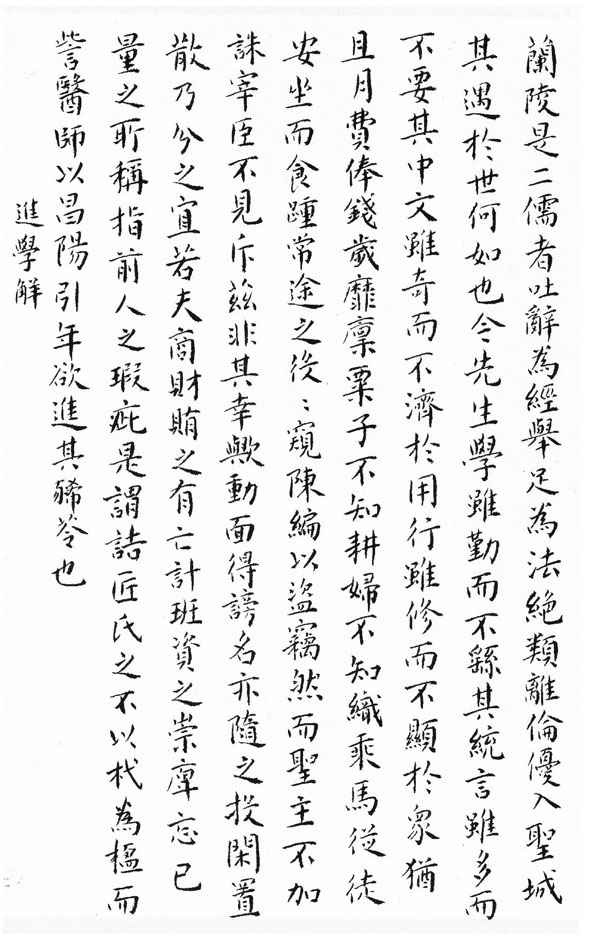 蘭陵是二儒者吐辭為經舉足為法絕類離倫優入聖城
其遇於世何如也今先生學雖勤而不繇其統言雖多而
不要其中文雖奇而不濟於用行雖修而不顯於眾猶
且月費俸錢歲靡廩粟子不知耕婦不知織乘馬從徒
安坐而食踵常途之役：窺陳編以盜竊然而聖主不加
誅宰臣不見斥茲非其幸歟動而得謗名亦隨之投閑置
散乃分之宜若夫商財賄之有亡計班資之崇庳忘己
量之所稱指前人之瑕疵是謂詰匠氏之不以杙為楹而
訾醫師以昌陽引年欲進其豨苓也
進學解